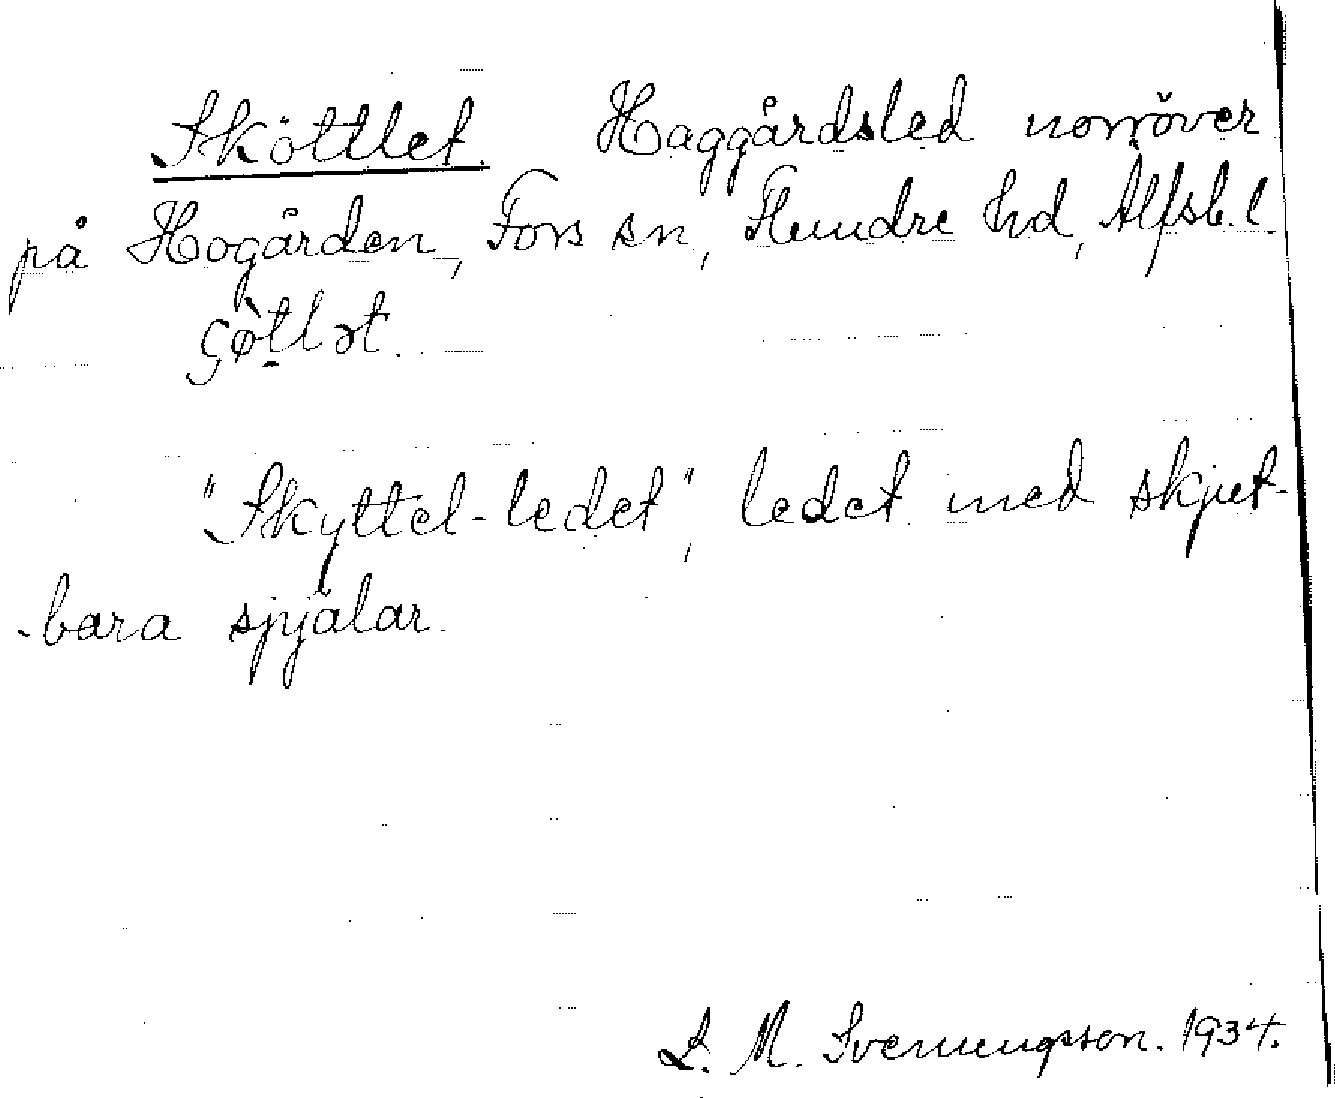 Sköttlet. Haggårdsled norröver
på Hogården, Fors sn, Flundre hd, Älfsb. l.
çø̀tlət.
"Skyttel-ledet", ledet med skjut-
-bara sjyalar.
L. M. Svenungsson. 1934.